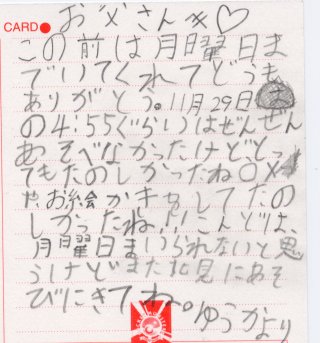 CARD
お父さんへ♡
この前は月曜日ま
でいてくれてどうも
ありがとう。11月29日
の4:55ぐらいはぜんぜん
あそべなかったけど、とっ
てもたのしかったね○×
や、お絵かきもしてたの
しかったね!!こんどは、
月曜日までいられないと思
うけどまた北見にあそ
びにきてね。ゆうかより